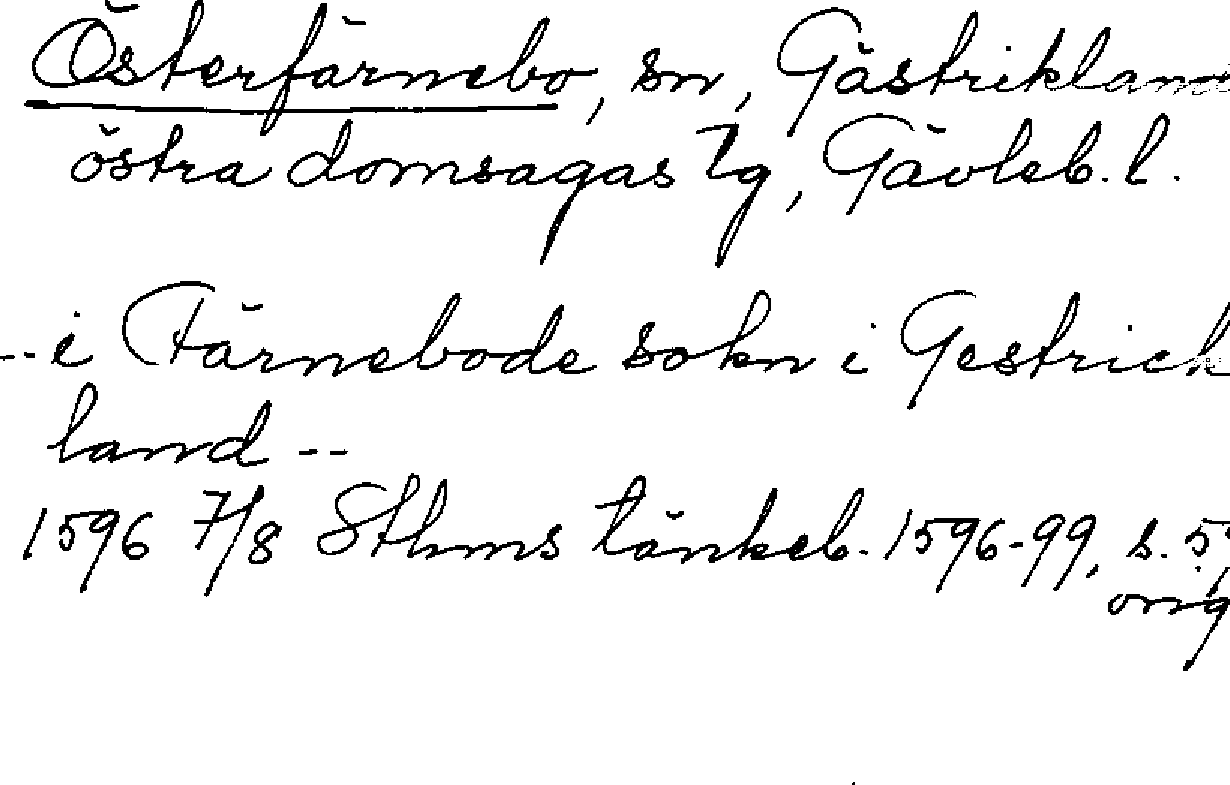 Österfärnebo, sn, Gästrikland
östra domsagas tg, Gävleb. l.
--i Färnebode sokn i Gestrick
land --
1596 7/8 Sthms tänkeb. 1596-99, s. 59
orig